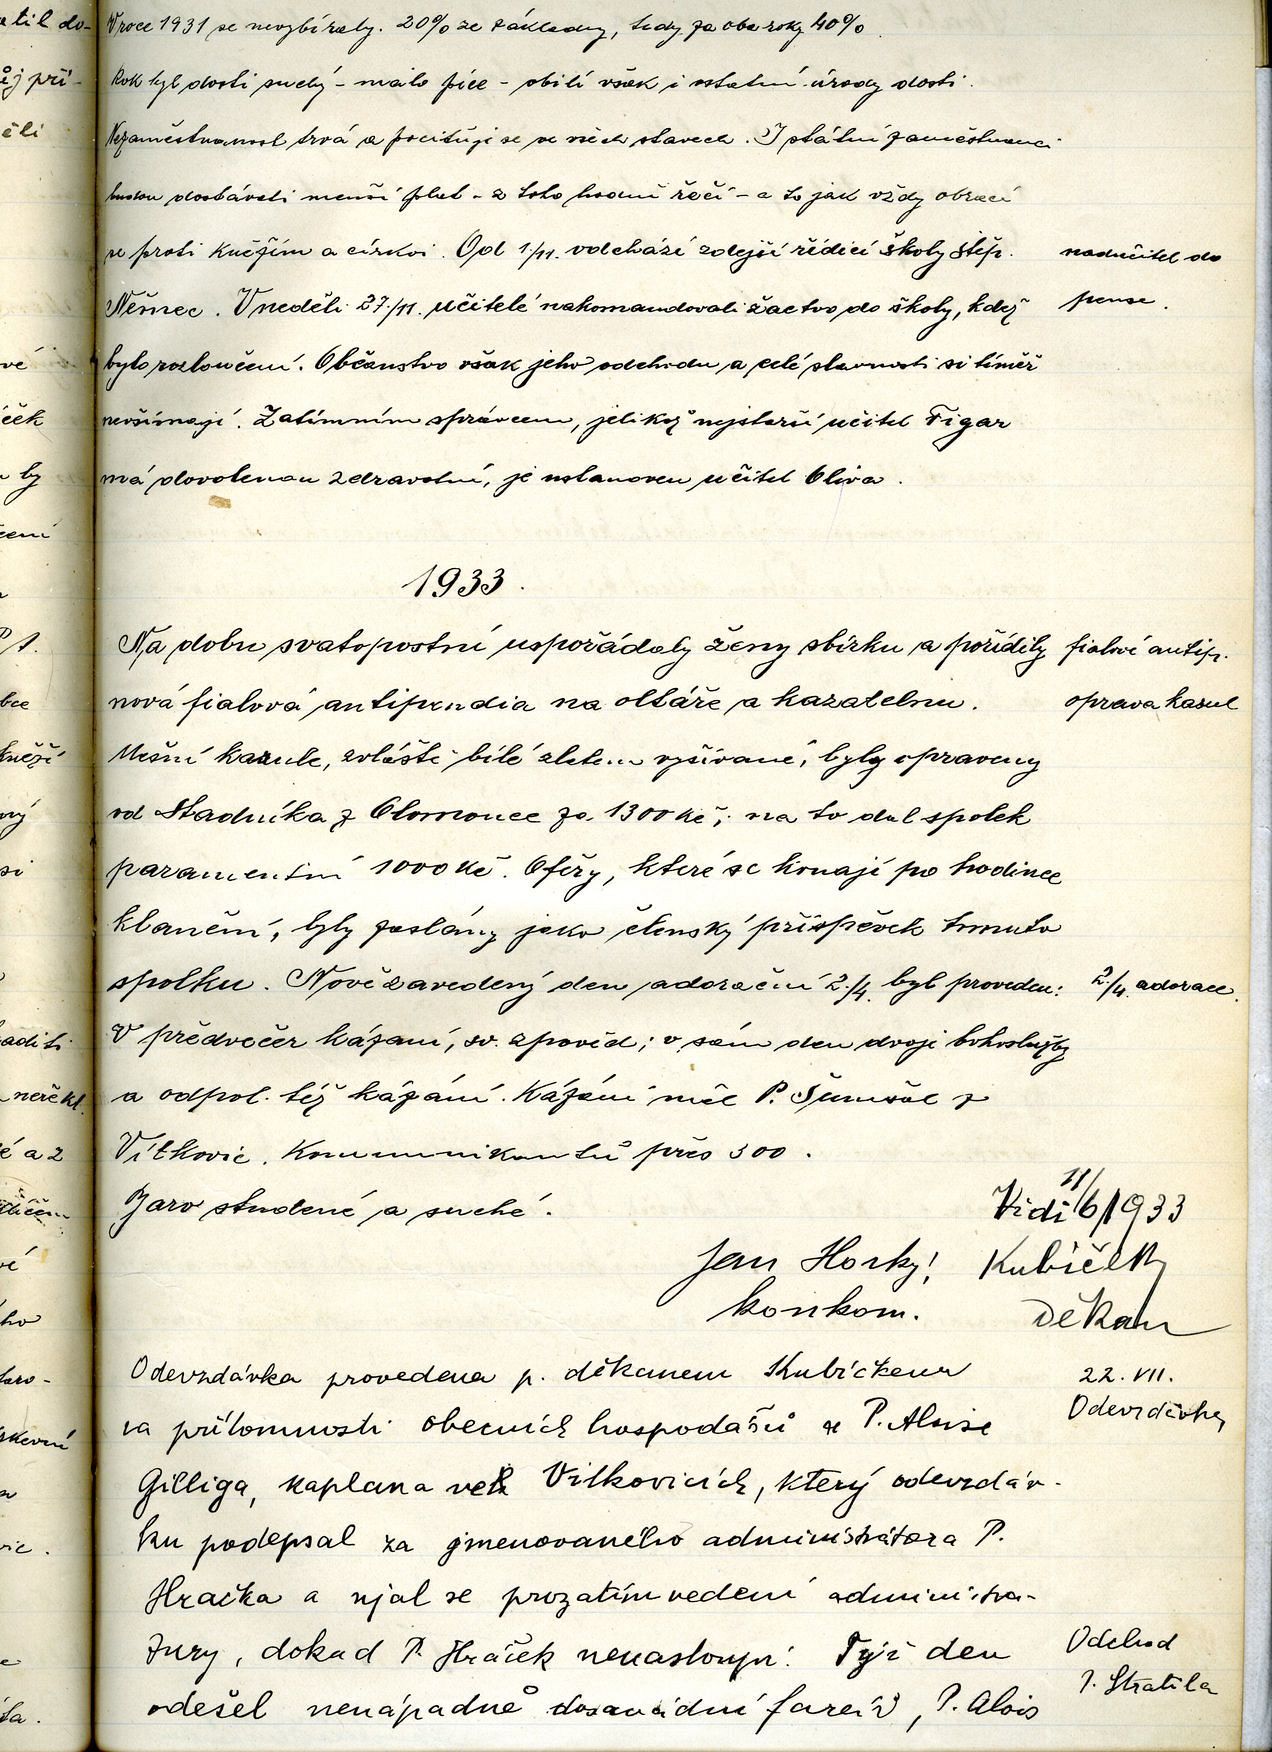 V roce 1931 se nevybíraly. 20% ze základny, tedy za oba roky 40%.
Rok byl dosti suchý – málo píce – obilí však i ostatní úrody dosti.
Nezaměstnanost trvá a pociťuje se ve všech stavech. I státní zaměstnanci
budou dostávati menší plat – z toho hodně řečí – a to jak vždy obrací
se proti kněžím a církvi. Od 1./11. odchází zdejší řídící školy Štěp.
nadučitel do
Němec. V neděli 27./11. učitelé nakomandovali žactvo do školy, kdež
pense.
bylo rozloučení. Občanstvo však jeho odchodu a celé slavnosti si téměř
nevšímají. Zatímním správcem, jelikož nejstarší učitel Figar
má dovolenou zdravotní, je ustanoven učitel Oliva.
1933.
Na dobu svatopostní uspořádaly ženy sbírku a pořídily
fialové antip.
nová fialová antipendia na oltáře a kazatelnu.
oprava kasul
Mešní kasule, zvláště bílé zlatem vyšívané, byly opraveny
od Stadníka z Olomouce za 1300 Kč; na to dal spolek
paramentní 1000 Kč. Ofěry, které se konají po hodince
klanění, byly zaslány jako členský příspěvek tomuto
spolku. Nově zavedený den adorační 2./4. byl proveden:
2./4. adorace.
V předvečer kázaní, sv. zpověd; v sám den dvoje bohoslužby
a odpol. též kázání. Kázání měl P. z
Vítkovic. Kommunikantů přes 300.
Jaro studené a suché.
Vidi 11/6/1933
Jan Horký
Kubíček
konkom.
Děkan
Odevzdávka provedena p. děkanem Kubíčkem
22. VII.
za přítomnosti obecních hospodářů a P. Aloise
Odevzdávka
Gilliga, kaplana ve Vítkovicích, který odevzdáv-
ku podepsal za jmenovaného administrátora P.
Hráčka a ujal se prozatím vedení administra-
tury, dokad P. Hráček nenastoupí. Týž den
Odchod
P. Stratila
odešel nenápadně dosavádní farář, P. Alois